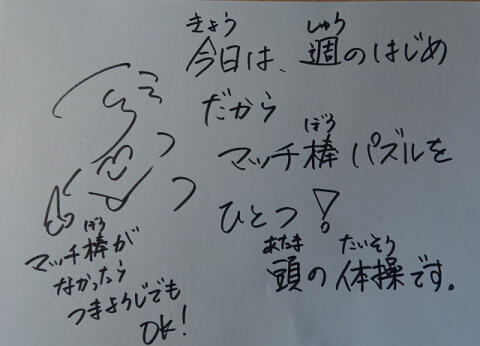 きょう しゅう
今日は、週のはじめ
だから
ぼう
マッチ棒パズルを
ひとつ!
あたま たいそう
頭の体操です。
ぼう
マッチ棒が
なかったら
つまようじでも
OK!